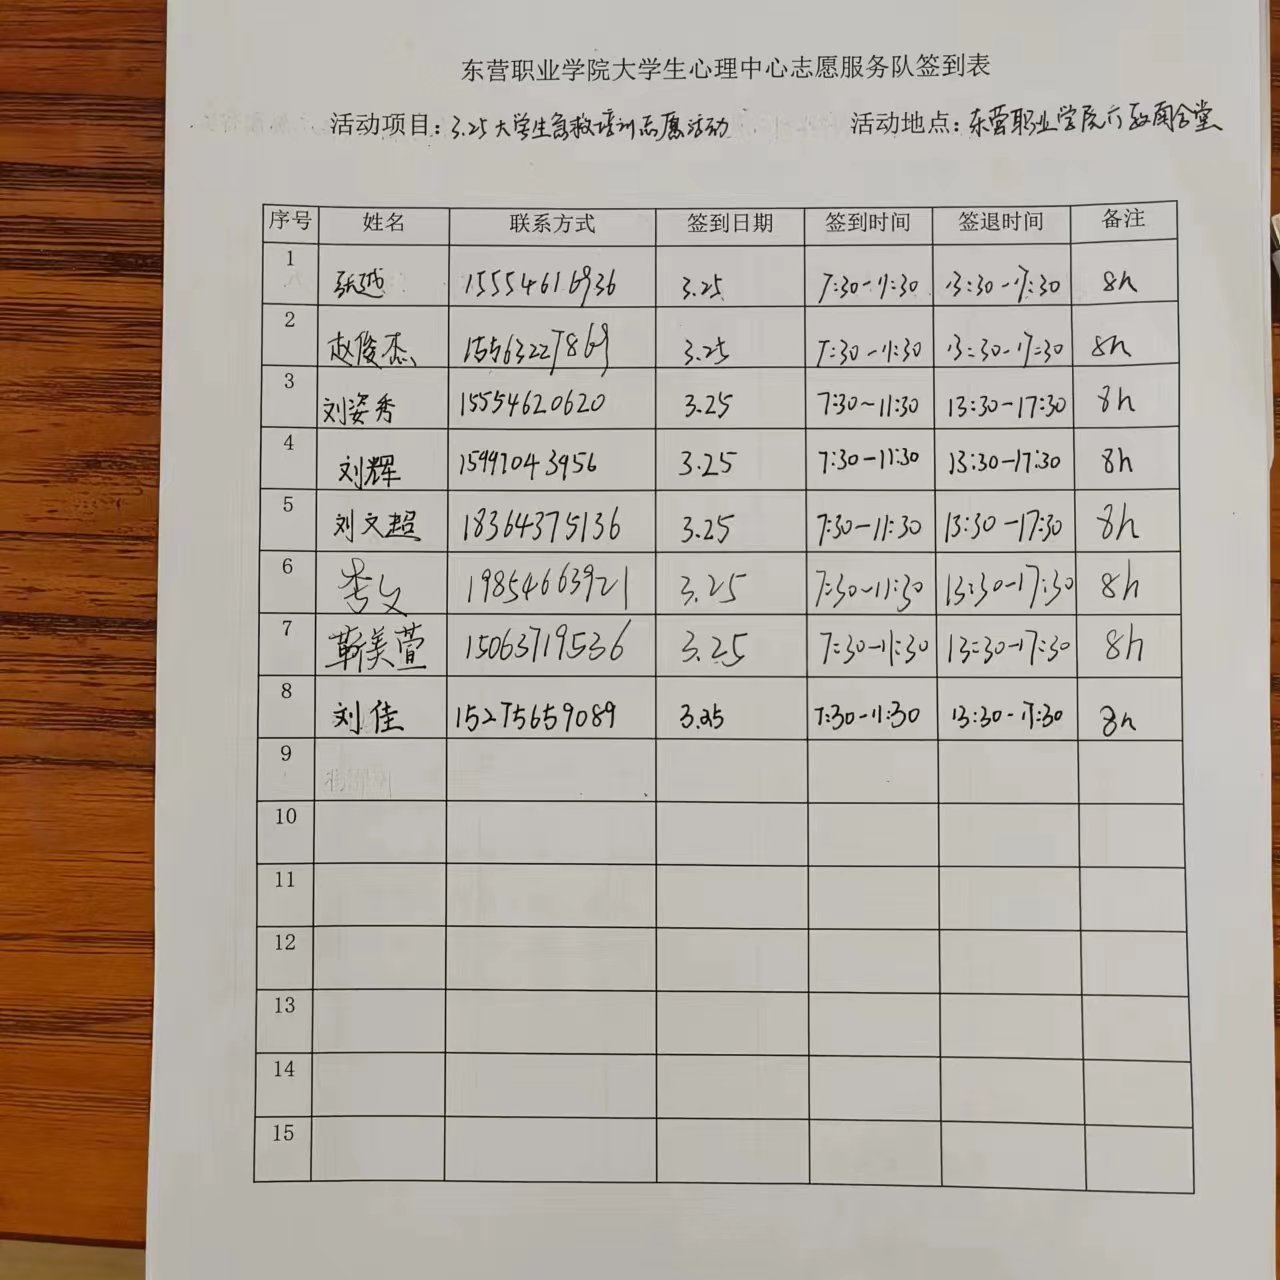 东营职业学院大学生心理中心志愿服务队签到表
活动项目：3.25大学生急救培训志愿活动 活动地点：东营职业学院六教南合堂
序号 姓名 联系方式 签到日期 签到时间 签退时间 备注
1 张越 15554616936 3.25 7:30-11:30 13:30-17:30 8h
2 赵俊杰 15563227869 3.25 7:30-11:30 13:30-17:30 8h
3 刘姿秀 15554620620 3.25 7:30~11:30 13:30-17:30 8h
4 刘辉 15997043956 3.25 7:30-11:30 13:30-17:30 8h
5 刘文超 18364375136 3.25 7:30-11:30 13:30-17:30 8h
6 李文 19854663921 3.25 7:30-11:30 13:30-17:30 8h
7 靳美萱 15063719536 3.25 7:30-11:30 13:30-17:30 8h
8 刘佳 15275659089 3.25 7:30-11:30 13:30-17:30 8h
9
10
11
12
13
14
15